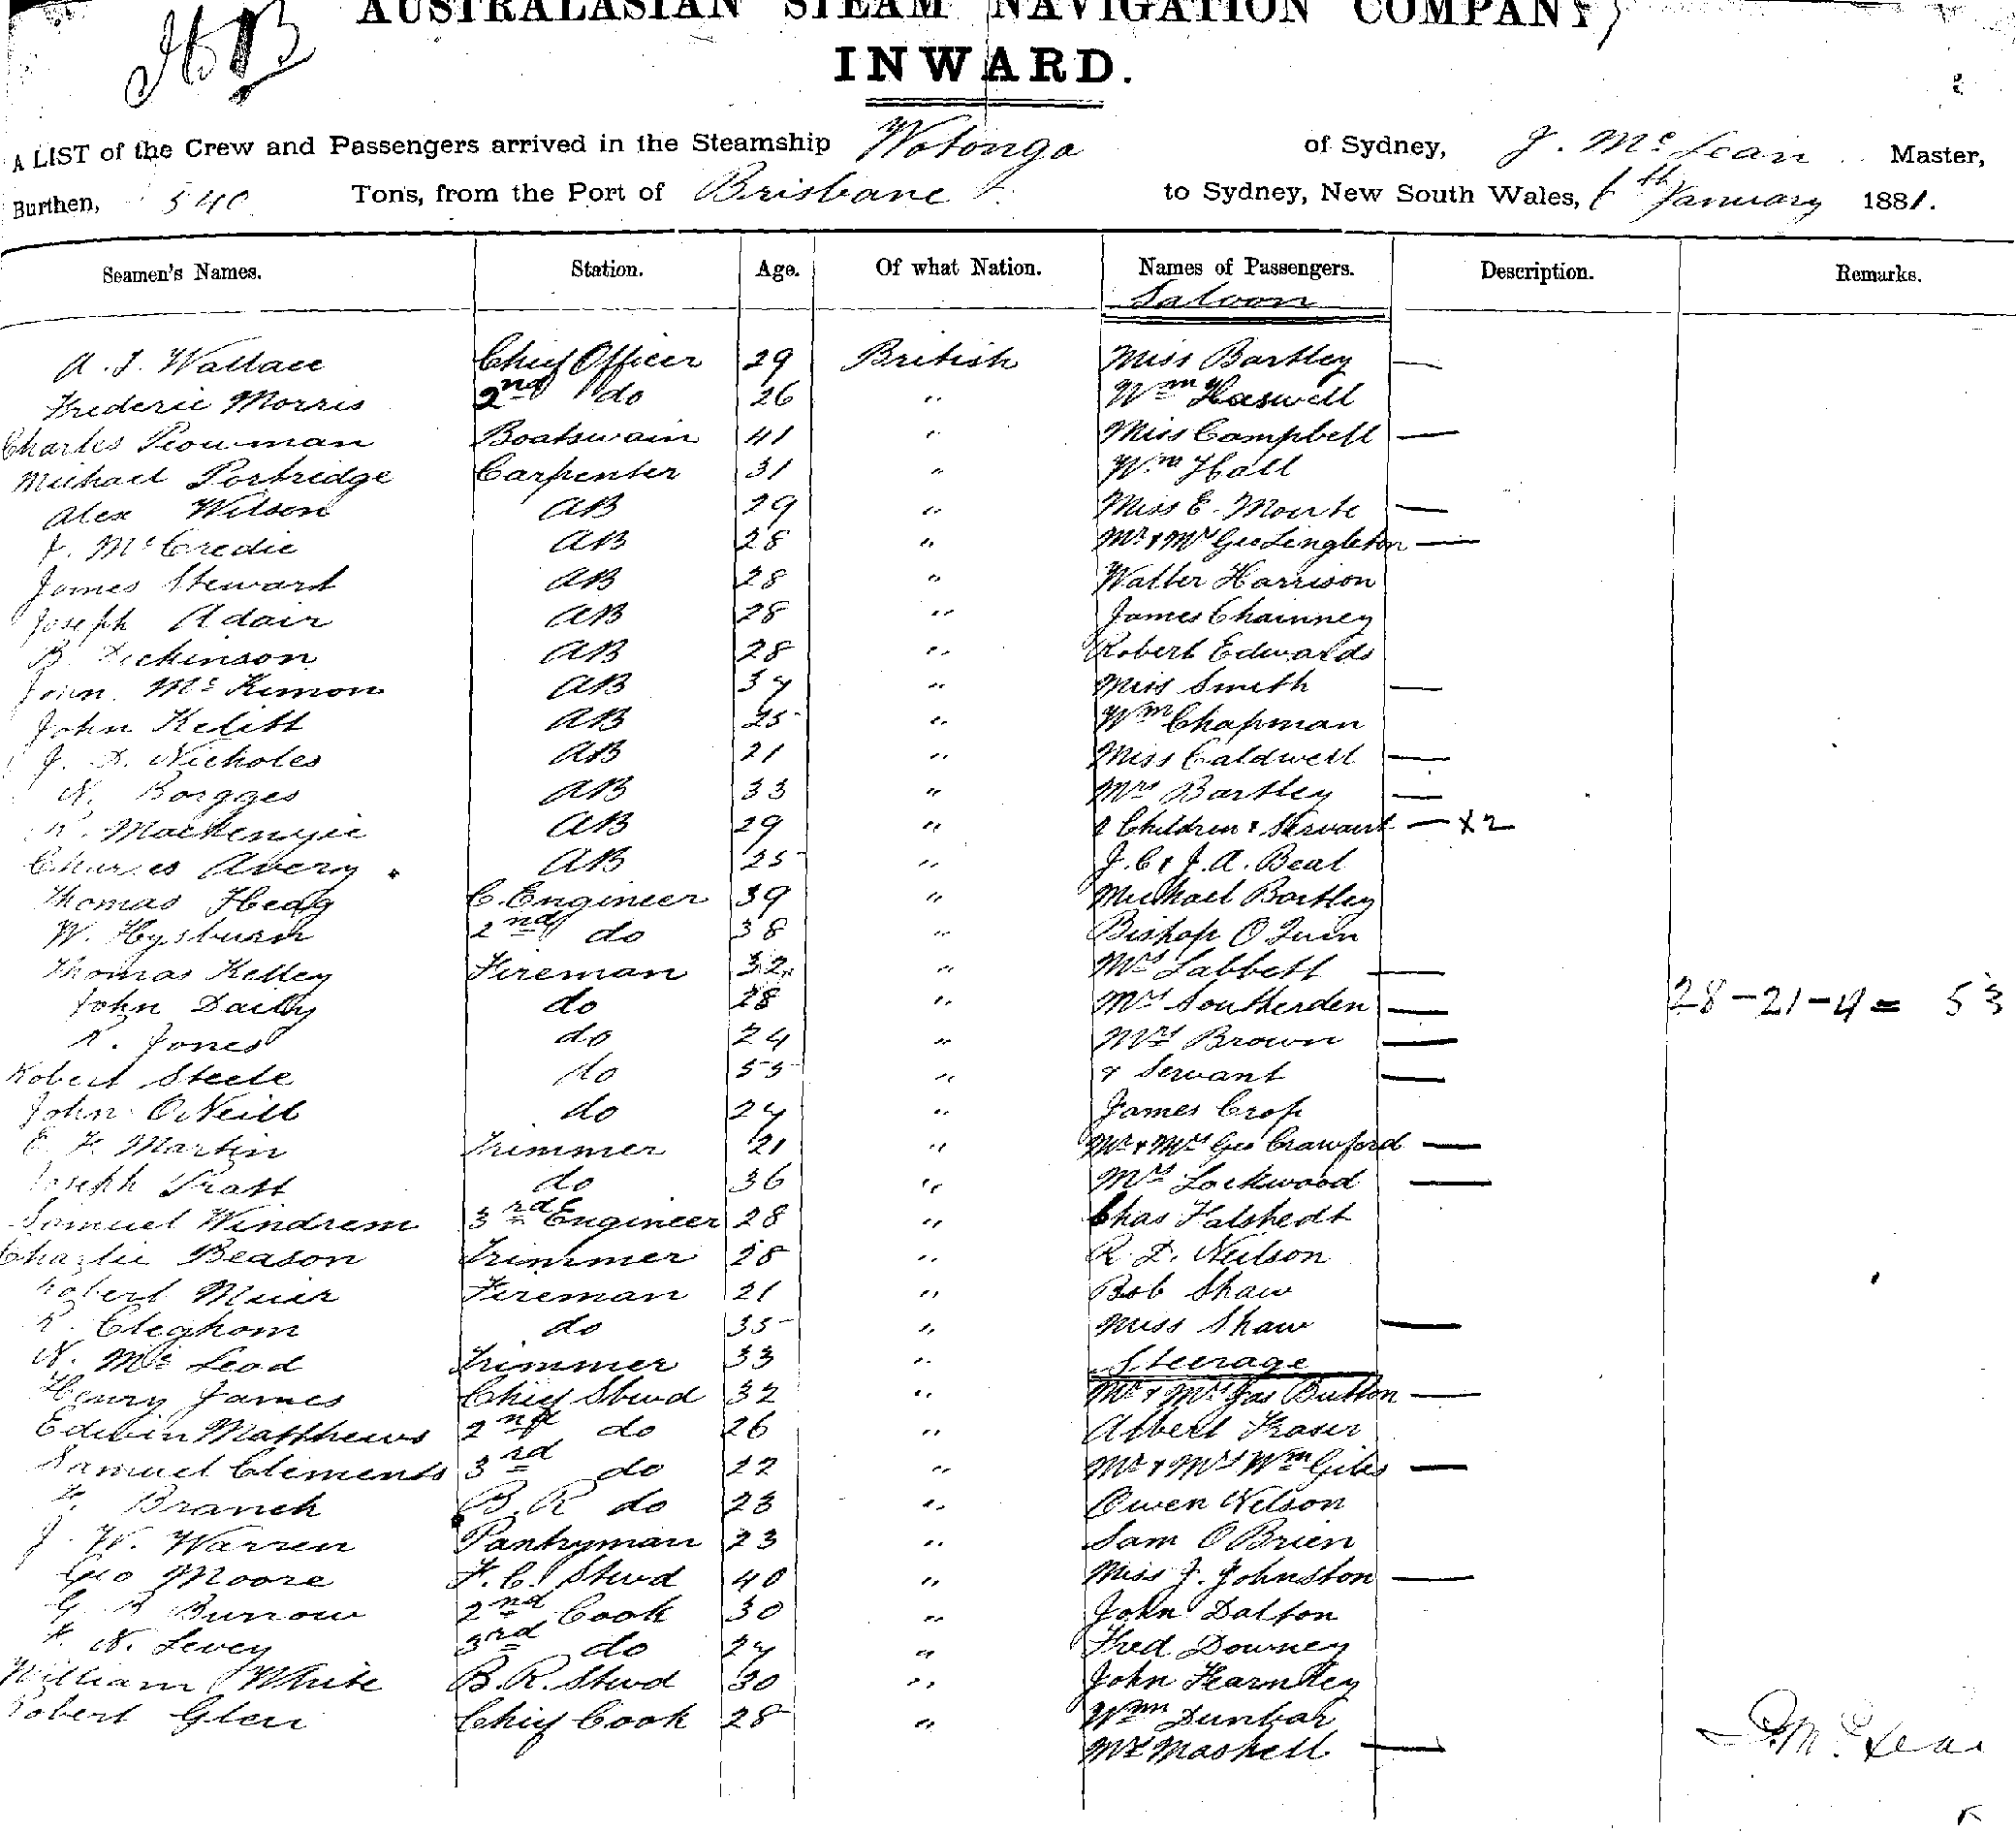 AUSTRALASIAN STEAM NAVIGATION COMPANY,
INWARD.
A LIST of the Crew and Passengers arrived in the Steamship Wotonga of Sydney, J. McLean Master,
Burthen, 540 Tons, from the Port of Brisbane to Sydney, New South Wales, 6th January 1881.
Seamen's Names. Station. Age. Of what Nation. Names of Passengers. Description. Remarks.
Saloon
A. J. Wallace Chief Officer 29 British Miss Bartley —
Frederic Morris 2nd do 26 " Wm Haswell
Charles Plowman Boatswain 41 " Miss Campbell —
Michael Portridge Carpenter 31 " Wm Hall
Alex Wilson AB 29 " Miss E. —
J. McCredie AB 28 " Mr & Mrs Geo Singleton —
James Steward AB 28 " Walter Harrison
Joseph Adair AB 28 " James Chainney
B. Dickinson AB 28 " Robert Edwards
John McKimon AB 34 " Miss Smith —
John Kelitt AB 25 " Wm Chapman
J. D. Nicholes AB 21 " Miss Caldwell —
N. Borgges AB 33 " Mrs Bartley —
Mackenzie AB 29 " 2 Children & Servant — x2
Charles Avery AB 25 " J. C & J. A. Beal
Thomas Hedg C. Engineer 39 " Michael Bartley
W. Heysburn 2nd do 38 " Bishop O Quin
Thomas Kelley Fireman 32 " Mrs Labbett —
John Dailly do 28 " Mrs Southerden — 28-21-4= 53
R. Jones do 24 " Mrs Brown —
Robert Steele do 55 " & Servant —
John ONeill do 24 " James Crop
E. F. Martin Trimmer 21 " Mr & Mrs Geo Crawford —
Joseph Pratt do 36 " Mrs Lockwood —
Samuel Windrem 3rd Engineer 28 " Chas Falshedt
Charlie Beason Trimmer 28 " R. D. Neilson
Robert Muir Fireman 21 " Bob Shaw
R. Cleghorn do 35 " Miss Shaw —
N. McLeod Trimmer 33 " Steerage
Henry James Chief Stwd 32 " Mr & Mrs Jas Button —
Edwin Matthews 2nd do 26 " Albert Fraser
Samuel Clements 3rd do 22 " Mr & Mrs Wm Giles —
F. Branch B. R do 23 " Owen Nelson
J. W. Warren Pantryman 23 " Sam OBrien
Geo Moore F. C. Stwd 40 " Miss J. Johnston —
G B Burrow 2nd Cook 30 " John Dalton
F. N. Levey 3rd do 24 " Fred Downey
William White B. R. Stwd 30 " John Fearnley
Robert Glen Chief Cook 28 " Wm Dunbar
Mrs Maskell —
J. McLean